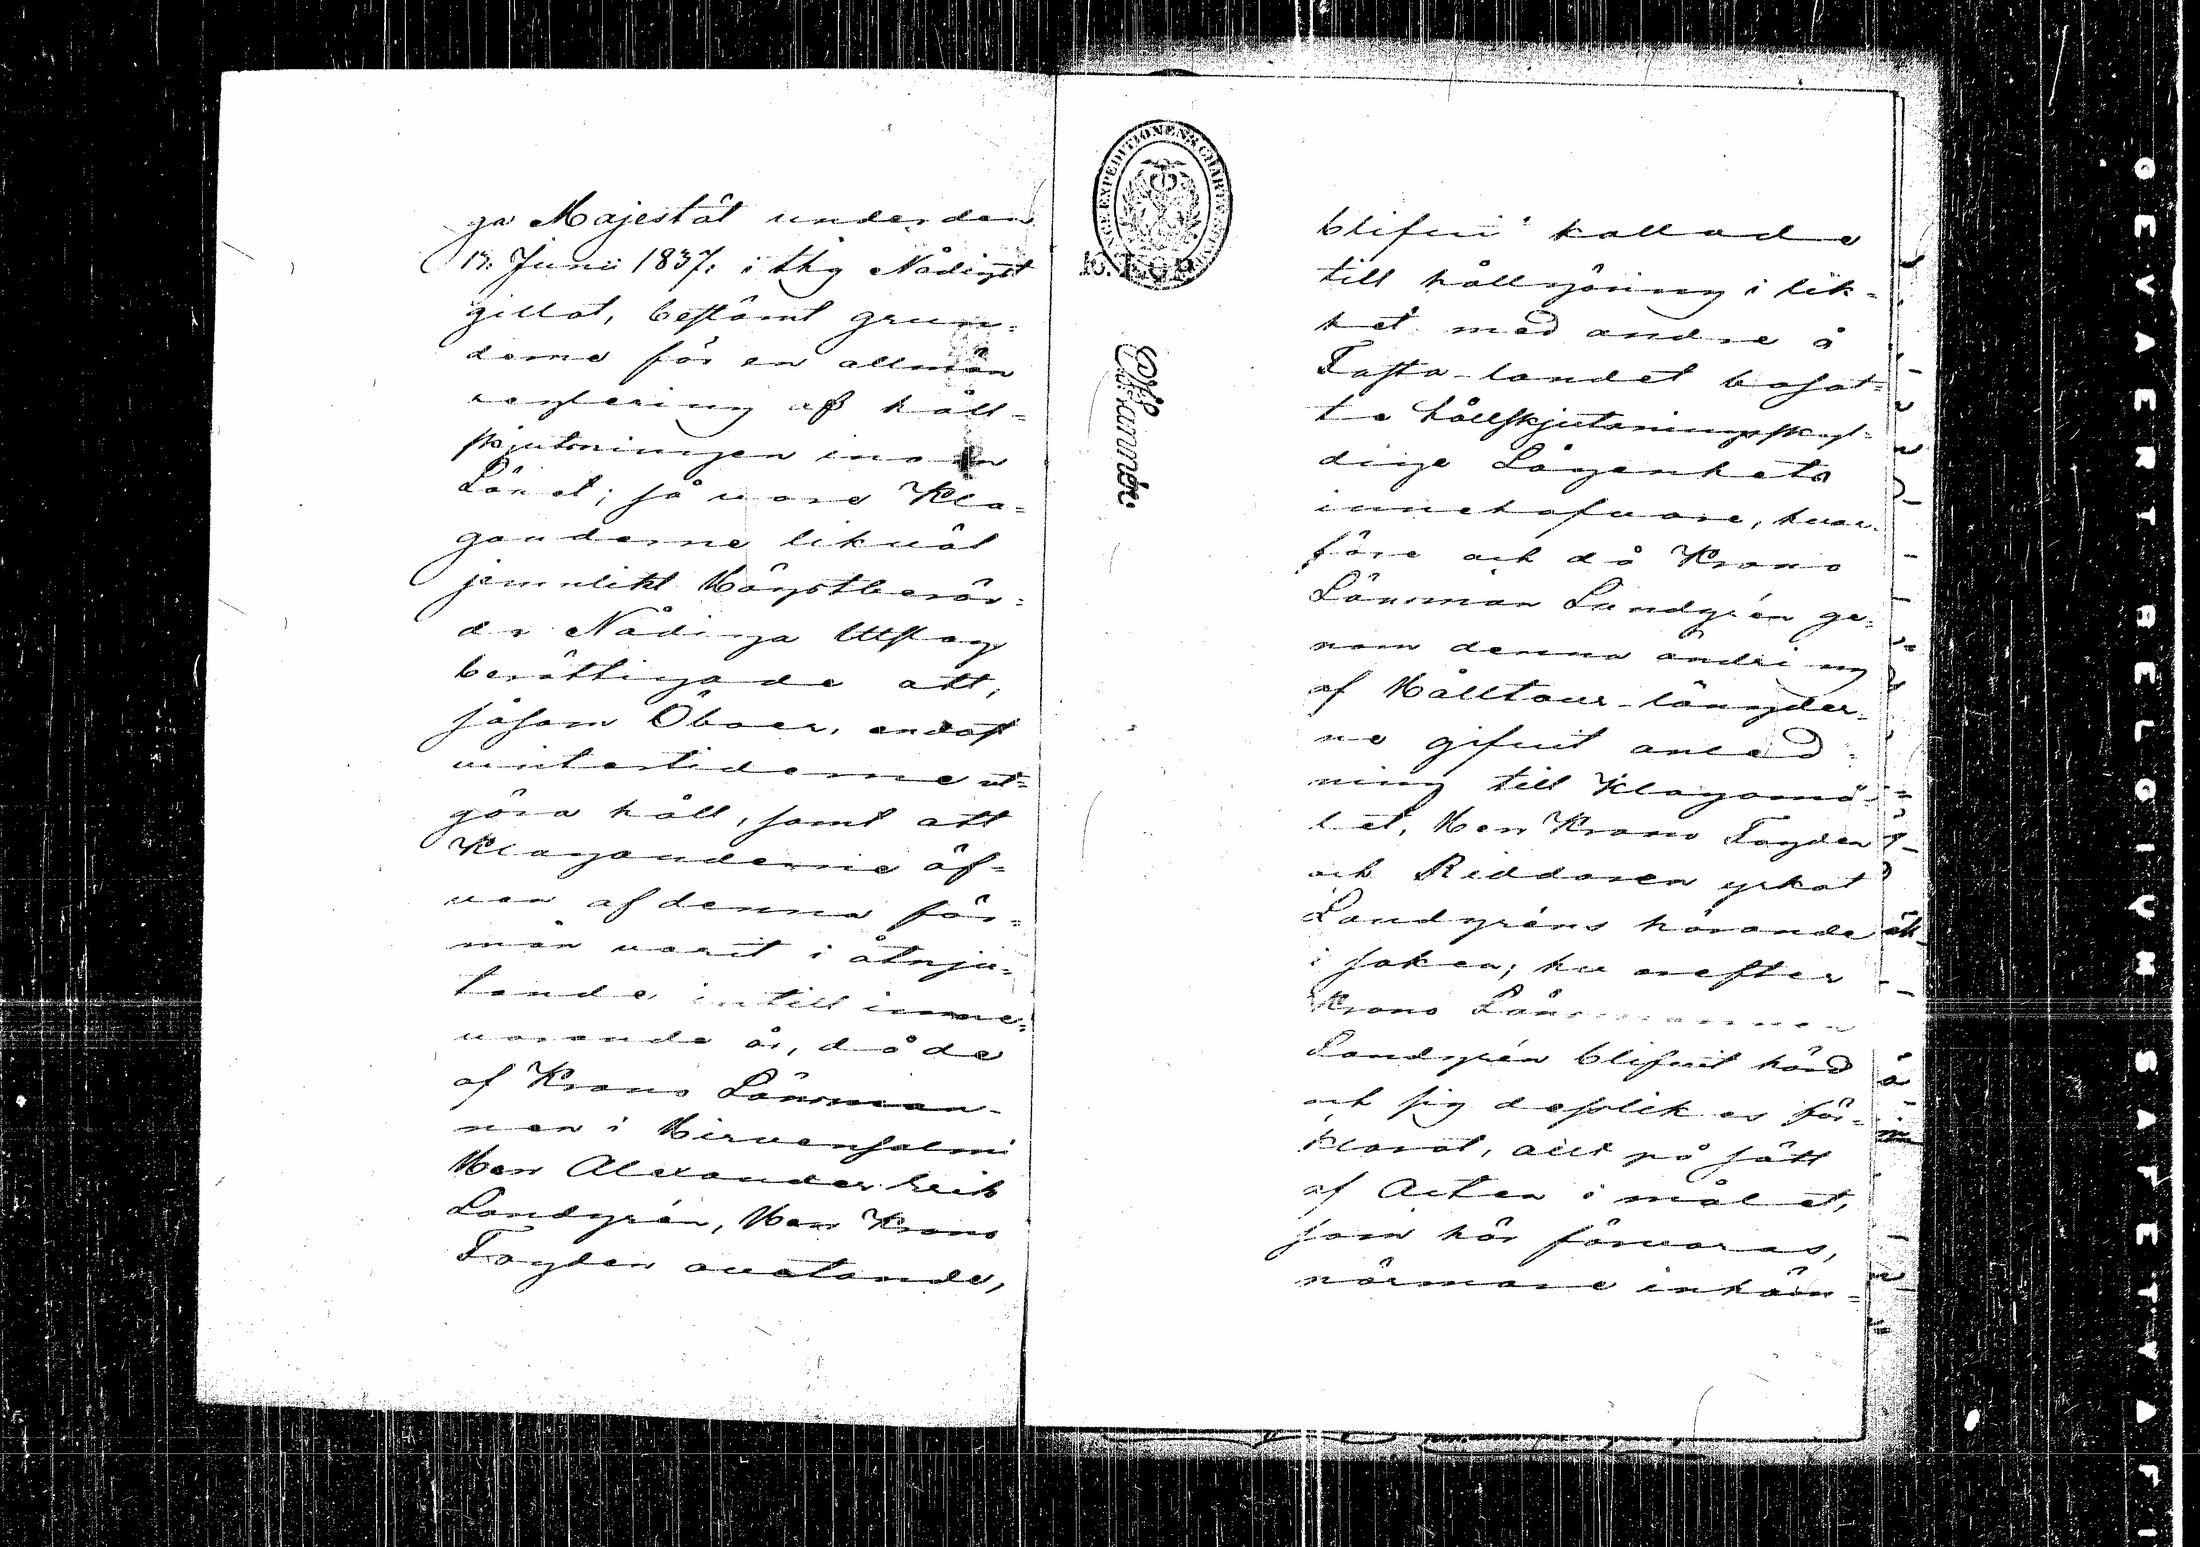 ga Majestät under den
17. Junii 1837. i thy Nådigst
gillat, bestämt grun=
derne för en allmän
reglering af håll=
skjutsningen inom
Länet; så vore Kla=
ganderne likväl
jemnlikt Högstberör=
da Nådiga Utslag
berättigade att,
såsom Öboer, endast
vintertiderne ut=
göra håll, samt att
Klaganderne äf=
ven af denna för=
mån varit i åtnju=
tande intill inne=
varande år, då de
af Krono Länsman=
nen i Hirvensalmi
Herr Alexander Erik
Landgrén, Herr Krono
Fogden ovetande,
blifvit kallade
till hållgöring i lik=
het med andre å
Fasta-landet bosat=
te hållskjutsningsskyl=
dige Lägenhets
innehafvare, hvar=
före och då Krono
Länsman Landgrén ge=
nom denna ändring
af Hålltours-längder=
ne gifvit anled=
ning till Klagomå=
let, Herr Krono Fogden
och Riddaren yrkat
Landgréns hörande
i saken; hvarefter
Krono Länsmannen
Landgrén blifvit hörd
och sig desslikes för=
klarat, allt på sätt
af Acten i målet,
som här förvaras,
närmare inhäm=